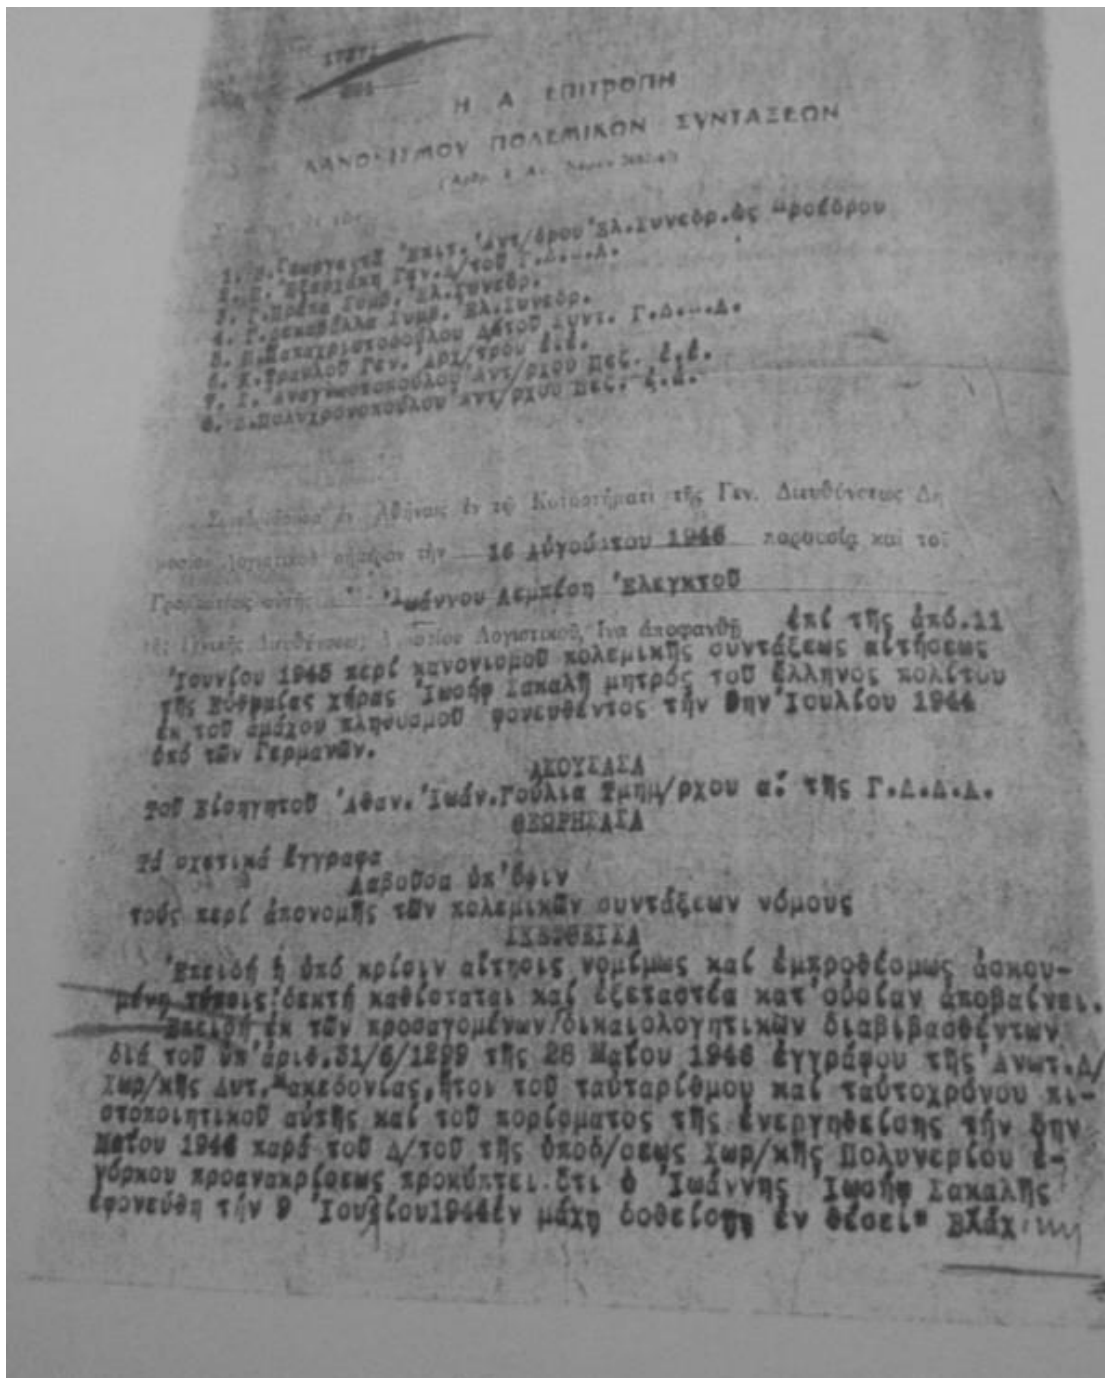 Η Α ΕΠΙΤΡΟΠΗ
ΚΑΝΟΝΙΣΜΟΥ ΠΟΛΕΜΙΚΩΝ ΣΥΝΤΑΞΕΩΝ
Ἐπιτ. Ἀντ/δρου Ἐλ.Συνεδρ.ὡς Προέδρου
2. Γεν.Δ/τοῦ
3. Συμβ. Ἐλ.Συνεδρ.
4. Γ. Συμβ. Ἐλ.Συνεδρ.
5. Π.Παπαχριστοδούλου Δ/τοῦ Συντ. Γ.Δ.
6. Κ.Τραυλοῦ Γεν. Ἀρχ/τρου ἐ.ἐ.
7. Ι. Ἀναγνωστοπούλου Ἀντ/ρχου Πεζ. ἐ.ἐ.
8. Πολυχρονοπούλου Ἀντ/ρχου Πεζ.
ἐν Ἀθήναις ἐν τῷ Καταστήματι τῆς Γεν. Διευθύνσεως Δη
σήμερον τὴν 16 Αὐγούστου 1946 παρουσίᾳ καὶ τοῦ
Γραμματέως αὐτῆς Ἰωάννου Λεμπέση Ἐλεγκτοῦ
τῆς Γενικῆς Διευθύνσεως Λογιστικοῦ, ἵνα ἀποφανθῇ ἐπί τῆς ἀπό.11
Ἰουνίου 1945 περί κανονισμοῦ πολεμικῆς συντάξεως αἰτήσεως
τῆς Εὐθυμίας χήρας Ἰωσήφ Σακαλῆ μητρός τοῦ ἕλληνος πολίτου
ἐκ τοῦ ἀμάχου πληθυσμοῦ φονευθέντος τήν 9ην Ἰουλίου 1944
ὑπό τῶν Γερμανῶν.
ΑΚΟΥΣΑΣΑ
Τοῦ Εἰσηγητοῦ Ἀθαν. Ἰωάν.Γούλια Τμημ/ρχου α΄ τῆς Γ.Δ.Δ.Λ.
ΘΕΩΡΗΣΑΣΑ
Τά σχετικά ἔγγραφα
Λαβοῦσα ὑπ'ὄψιν
τούς περί ἀπονομῆς τῶν πολεμικῶν συντάξεων νόμους
ΣΚΕΦΘΕΙΣΑ
Ἐπειδή ἡ ὑπό κρίσιν αἴτησις νομίμως καί ἐμπροθέσμως ἀσκου-
μένη τύποις δεκτή καθίσταται καί ἐξεταστέα κατ'οὐσίαν ἀποβαίνει.
Ἐπειδή ἐκ τῶν προσαγομένων δικαιολογητικῶν διαβιβασθέντων
διά τοῦ ὑπ'ἀριθ.31/6/1299 τῆς 28 Μαΐου 1946 ἐγγράφου τῆς Ἀνωτ.Δ/
Χωρ/κῆς Δυτ.Μακεδονίας,ἤτοι τοῦ ταὐταρίθμου καί ταὐτοχρόνου πι-
στοποιητικοῦ αὐτῆς καί τοῦ πορίσματος τῆς ἐνεργηθείσης τήν
Μαΐου 1946 παρά τοῦ Δ/τοῦ τῆς ὑποδ/σεως Χωρ/κῆς Πολυνερίου ἐ-
νόρκου προανακρίσεως προκύπτει ὅτι ὁ Ἰωάννης Ἰωσήφ Σακαλῆς
ἐφονεύθη τήν 9 Ἰουλίου1944ἐν μάχῃ δοθείσῃ ἐν θέσει" Βλάχ